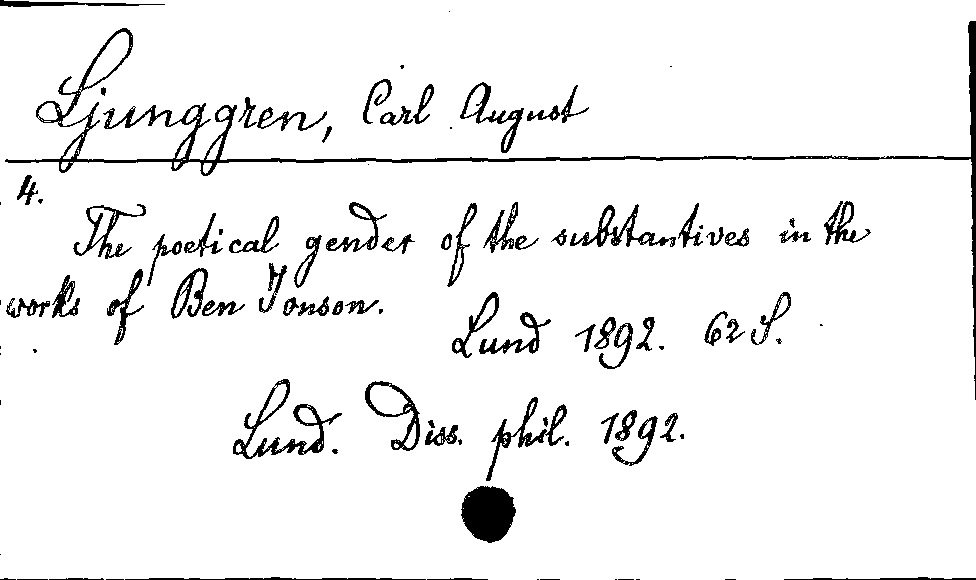 Ljunggren, Carl August
4.
The poetical gender of the substantives in the
works of Ben Jonson.
Lund 1892. 62 S.
Lund. Diss. phil. 1892.